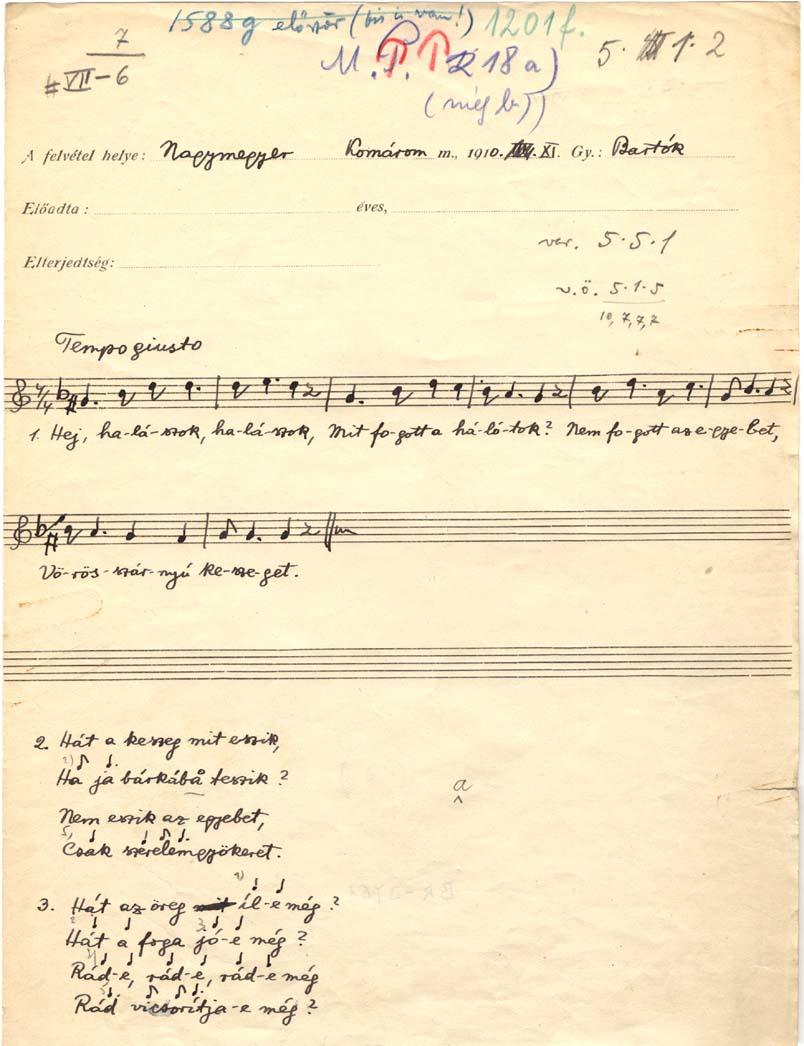 1588g először (bis is van!) 1201f.
7
# VII-6
M. P. T. 18a)
(még b.))
5. 1. 2
A felvétel helye: Nagymegyer Komárom m., 1910. XI. Gy.: Bartók
Előadta: éves,
ver. 5.5.1
Elterjedtség:
v.ö. 5.1.5
10,7,7,7
Tempo giusto
7/4
1. Hej, ha-lá-szok, ha-lá-szok, Mit fo-gott a há-ló-tok? Nem fo-gott az e-gye-bet,
Vö-rös-szár-nyú ke-sze-get.
2. Hát a keszeg mit eszik,
Ha ja bárkábå teszik?
a
Nem eszik az egyebet,
Csak szerelemgyökeret.
3. Hát az öreg mit íl-e még?
Hát a foga jó-e még?
Rád-e, rád-e, rád-e még
Rád vicsorítja-e még?